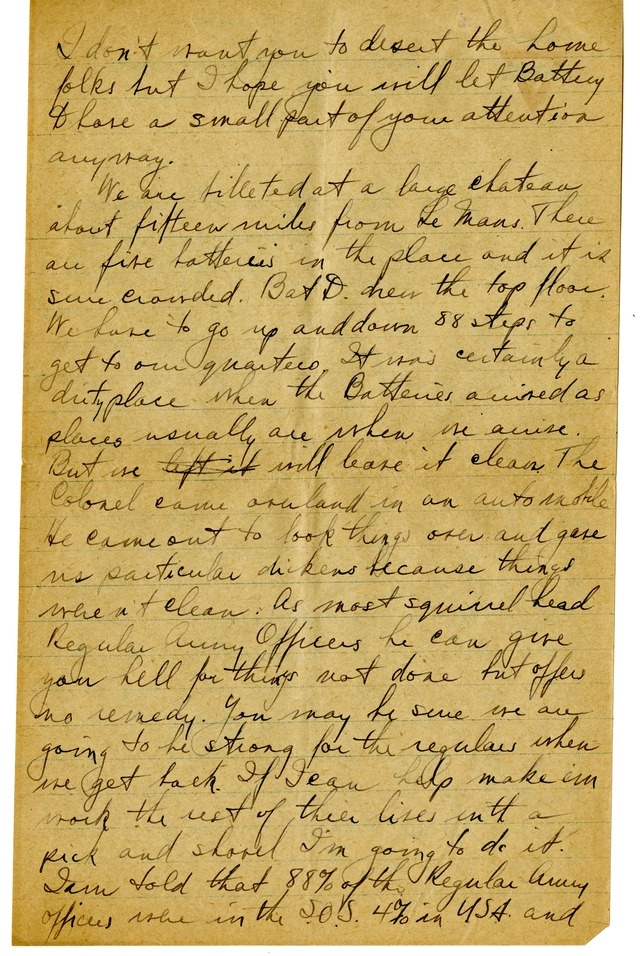 I don't want you to desert the home
folks but I hope you will let Battery
D have a small part of your attention
anyway.
We are billeted at a large chateau
about fifteen miles from Le Mans. There
are five batteries in the place and it is
sure crowded. Bat D. drew the top floor.
We have to go up and down 88 steps to
get to our quarters. It was certainly a
dirty place when the Batteries arrived as
places usually are when we arrive.
But we left it will leave it clean. The
Colonel came overland in an automobile
He came out to look things over and gave
us particular dickens because things
weren't clean. As most squirrel head
Regular Army Officers he can give
you hell for things not done but offers
no remedy. You may be sure we are
going to be strong for the regulars when
we get back. If I can help make 'em
work the rest of their lives with a
pick and shovel I'm going to do it.
I am told that 88% of the Regular Army
officers were in the S.O.S. 4% in USA. and